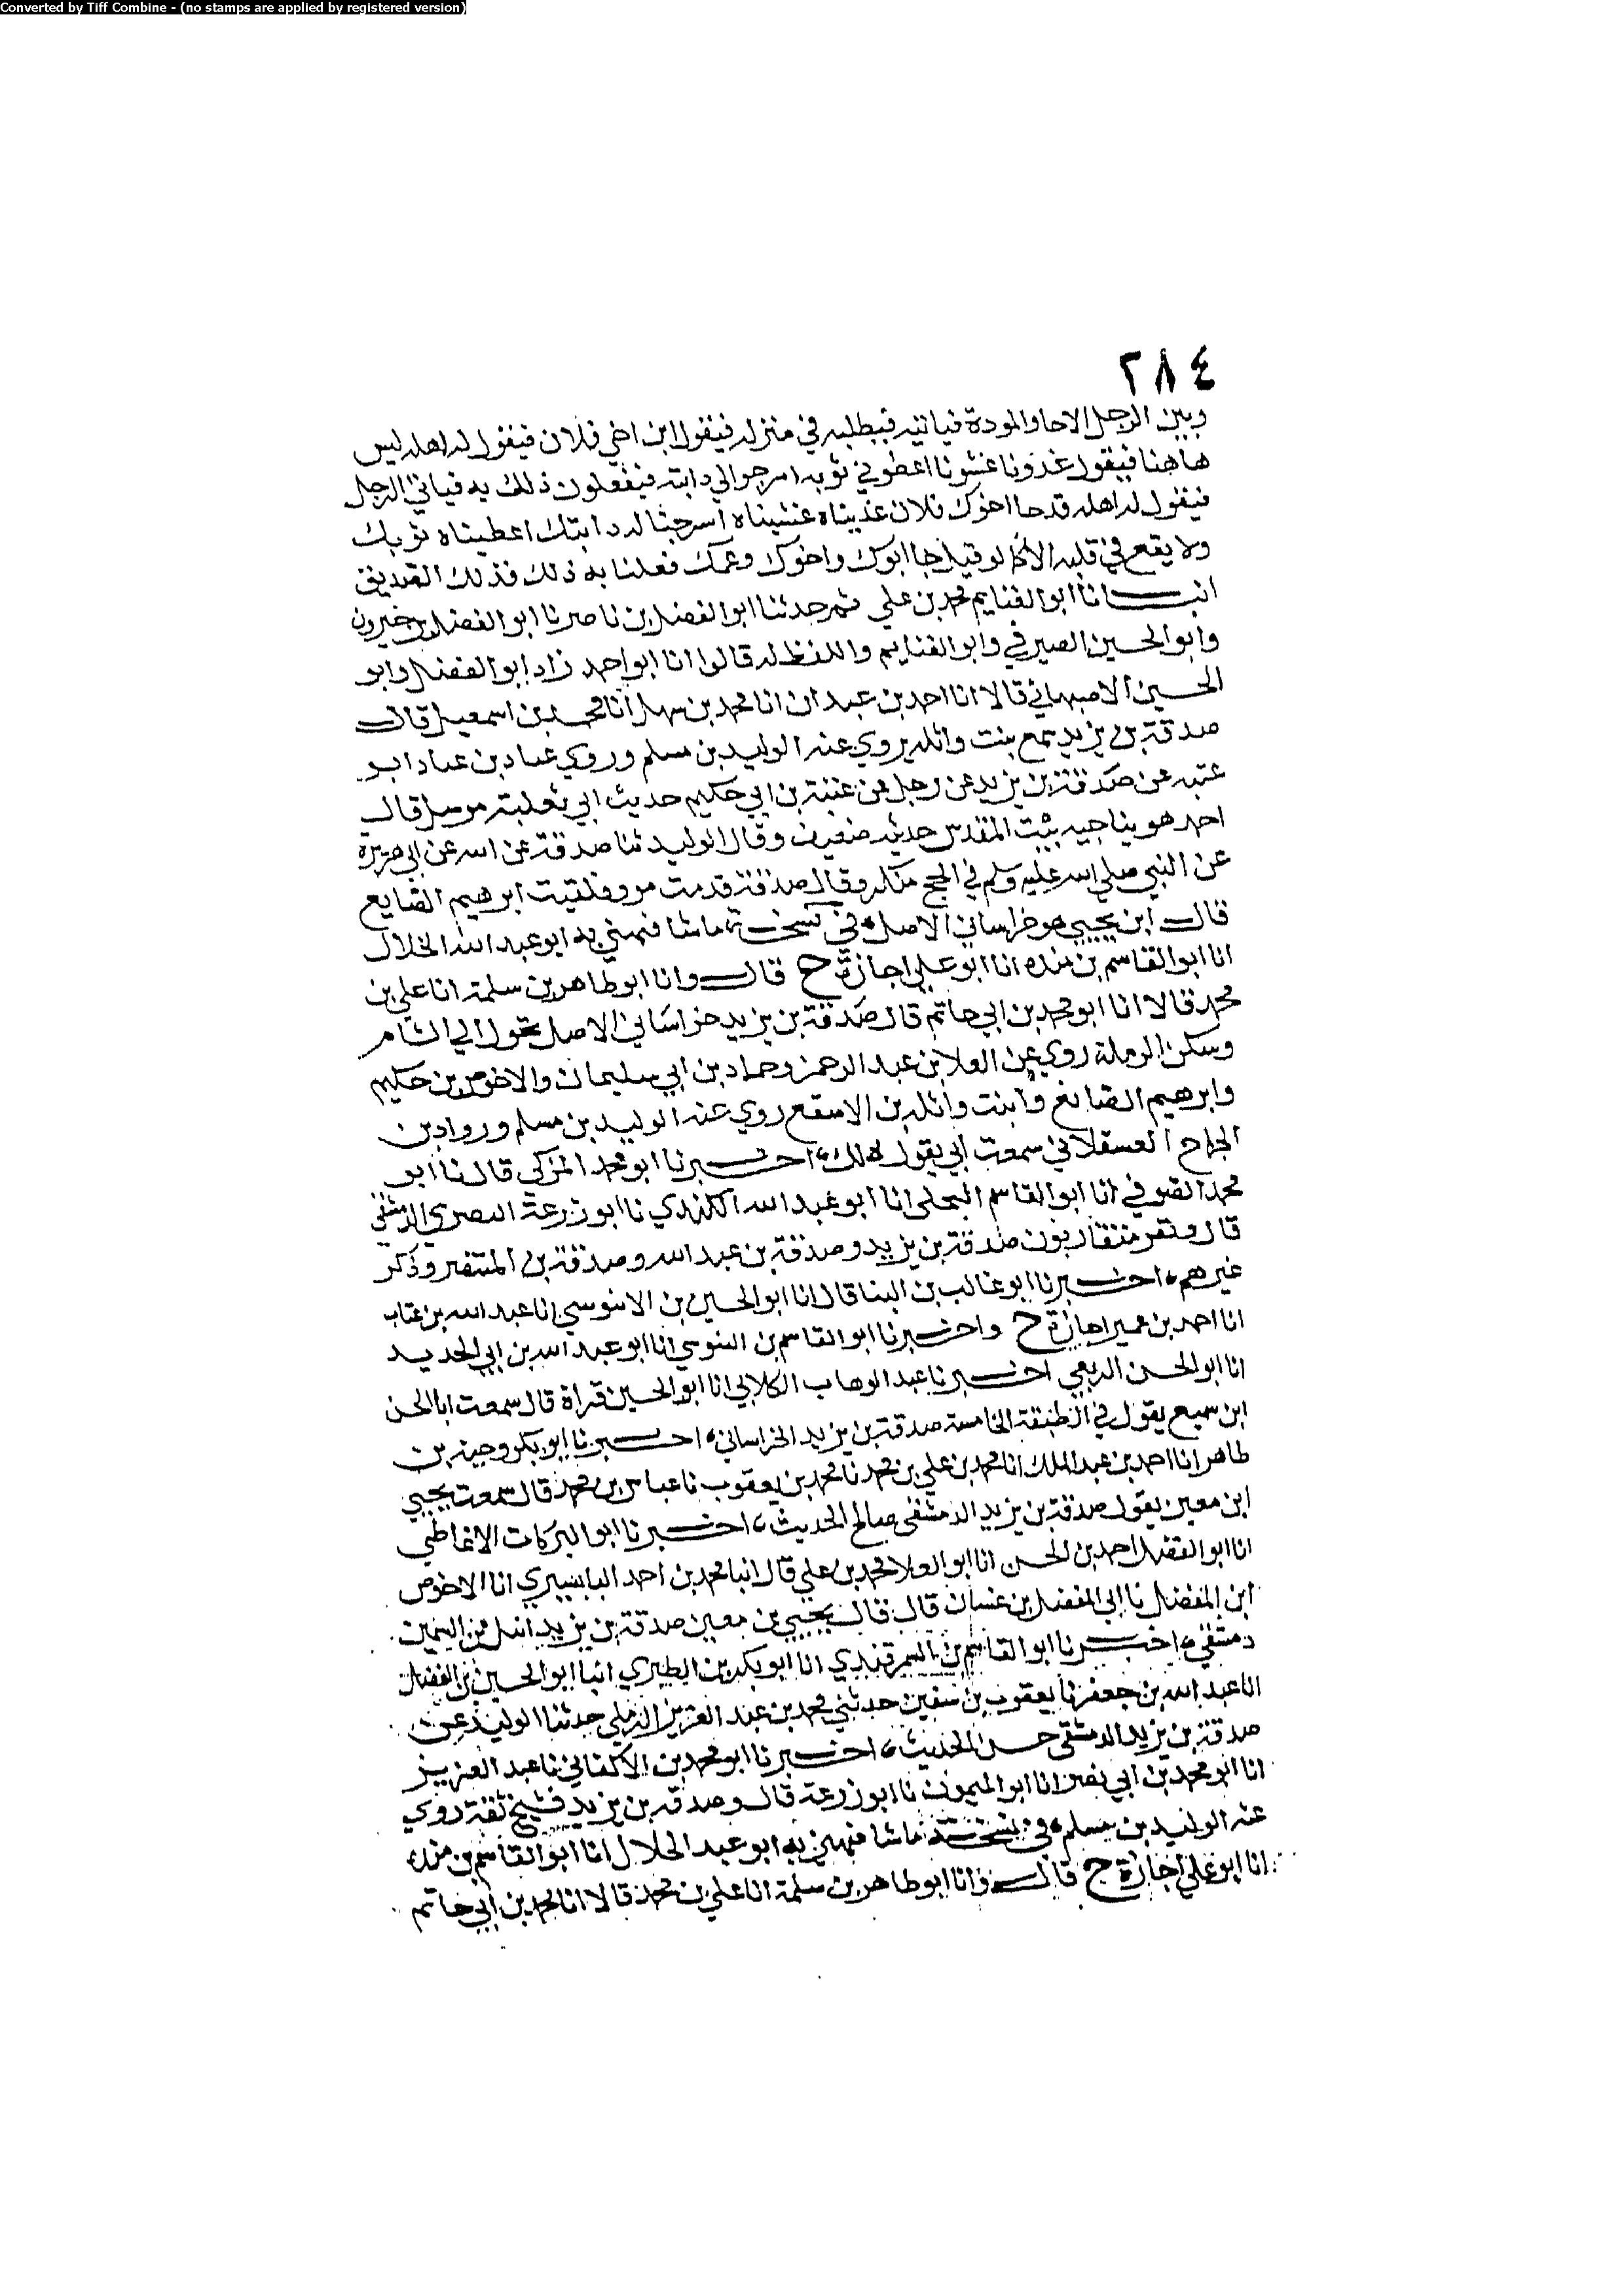 Converted by Tiff Combine - (no stamps are applied by registered version)
٢٨٤
وبين الرجل الاخا والمودة فياتيه فيطلبه في منزله فيقول ابن اخي فلان فيقول له اهله ليس
هاهنا فيقول غدونا عشونا اعطوني ثوبه اسرجوا لي دابته فيفعلون ذلك به فياتي الرجل
فيقول له اهله قد جا اخوك فلان غديناه عشيناه اسرجنا له دابتك اعطيناه ثوبك
ولا يقع في قلبه الا كما لو قيل جا ابوك واخوك وعمك فعلنا به ذلك فذلك الصديق
انبـــانا ابو الغنايم محمد بن علي ثم حدثنا ابو الفضل بن ناصر نا ابو الفضل بن خيرون
وابو الحسين الصيرفي وابو الغنايم واللفظ له قالوا انا ابو احمد زاد ابو الفضل وابو
الحسين الاصبهاني قالا انا احمد بن عبدان انا محمد بن سهل انا محمد بن اسمعيل قال
صدقة بن يزيد سمع بنت واثله يروي عنه الوليد بن مسلم وروى عباد بن عباد ابو
عتبه عن صدقة بن يزيد عن رجل عن عتبة بن ابي حكيم حديث ابي ثعلبة مرسل قال
احمد هو بناحيه بيت المقدس حديثه ضعيف وقال الوليد ثنا صدقة عن ابي هريرة
عن النبي صلى الله عليه وسلم في الحج منكر وقال صدقة قدمت مرو فلقيت ابرهيم الصايع
قال ابن يحيى هو خراساني الاصل، في نسخة ما شا فهني به ابو عبد الله الخلال
انا ابو القاسم بن منده انا ابو علي اجازة ح قال وانا ابو طاهر بن سلمة انا علي بن
محمد قالا انا ابو محمد بن ابي حاتم قال صدقة بن يزيد خراساني الاصل تحول الي الشام
وسكن الرملة روي عن العلا بن عبد الرحمن وحماد بن ابي سليمان والاحوص بن حكيم
وابرهيم الصائغ وابنت واثله بن الاسقع روي عنه الوليد بن مسلم ورواد بن
الجراح العسقلاني سمعت ابي يقول ذلك، اخـــبرنا ابو محمد المزكى قال نا ابو
محمد الصوفي انا ابو القاسم البجلي انا ابو عبد الله الكندي نا ابو زرعة النصري الدمشقي
قال ونفر متقاربون صدقة بن يزيد وصدقة بن عبد الله وصدقة بن المنتصر وذكر
غيرهم، اخـــبرنا ابو غالب بن البنا قال انا ابو الحسين بن الابنوسي انا عبد الله بن عتاب
انا احمد بن عمير اجازة ح واخـــبرنا ابو القاسم بن السوسي انا ابو عبد الله بن ابي الحديد
انا ابو الحسن الربعي اخـــبرنا عبد الوهاب الكلابي انا ابو الحسين قراة قال سمعت ابا الحسن
ابن سميع يقول في الطبقة الخامسة صدقة بن يزيد الخراساني، اخـــبرنا ابو بكر وجيه بن
طاهر انا احمد بن عبد الملك انا محمد بن علي بن محمد نا محمد بن يعقوب نا عباس بن محمد قال سمعت يحيى
ابن معين يقول صدقة بن يزيد الدمشقي صالح الحديث، اخـــبرنا ابو البركات الانماطي
انا ابو الفضل احمد بن الحسن انا ابو العلا محمد بن علي قال انبا محمد بن احمد البابسيري انا الاحوص
ابن المفضل نا ابي المفضل بن غسان قال قال يحيى بن معين صدقة بن يزيد
دمشقي، اخـــبرنا ابو القاسم بن السمرقندي انا ابو بكر بن الطبري انبا ابو الحسين بن الفضل
انا عبد الله بن جعفر نا يعقوب بن سفين حدثني محمد بن عبد العزيز الرملي حدثنا الوليد عن
صدقة بن يزيد الدمشقي حسن الحديث، اخـــبرنا ابو محمد بن الاكفاني نا عبد العزيز
انا ابو محمد بن ابي نصر انا ابو الميمون نا ابو زرعة قال وصدقه بن يزيد شيخ ثقة روي
عنه الوليد بن مسلم، في نسخة ما شا فهني به ابو عبد الخلال انا ابو القاسم بن منده
انا ابو علي اجازة ح قال وانا ابو طاهر بن سلمة انا علي بن محمد قالا انا محمد بن ابي حاتم